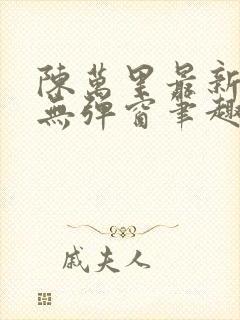 陳萬里最新
無彈窗筆趣
戚夫人